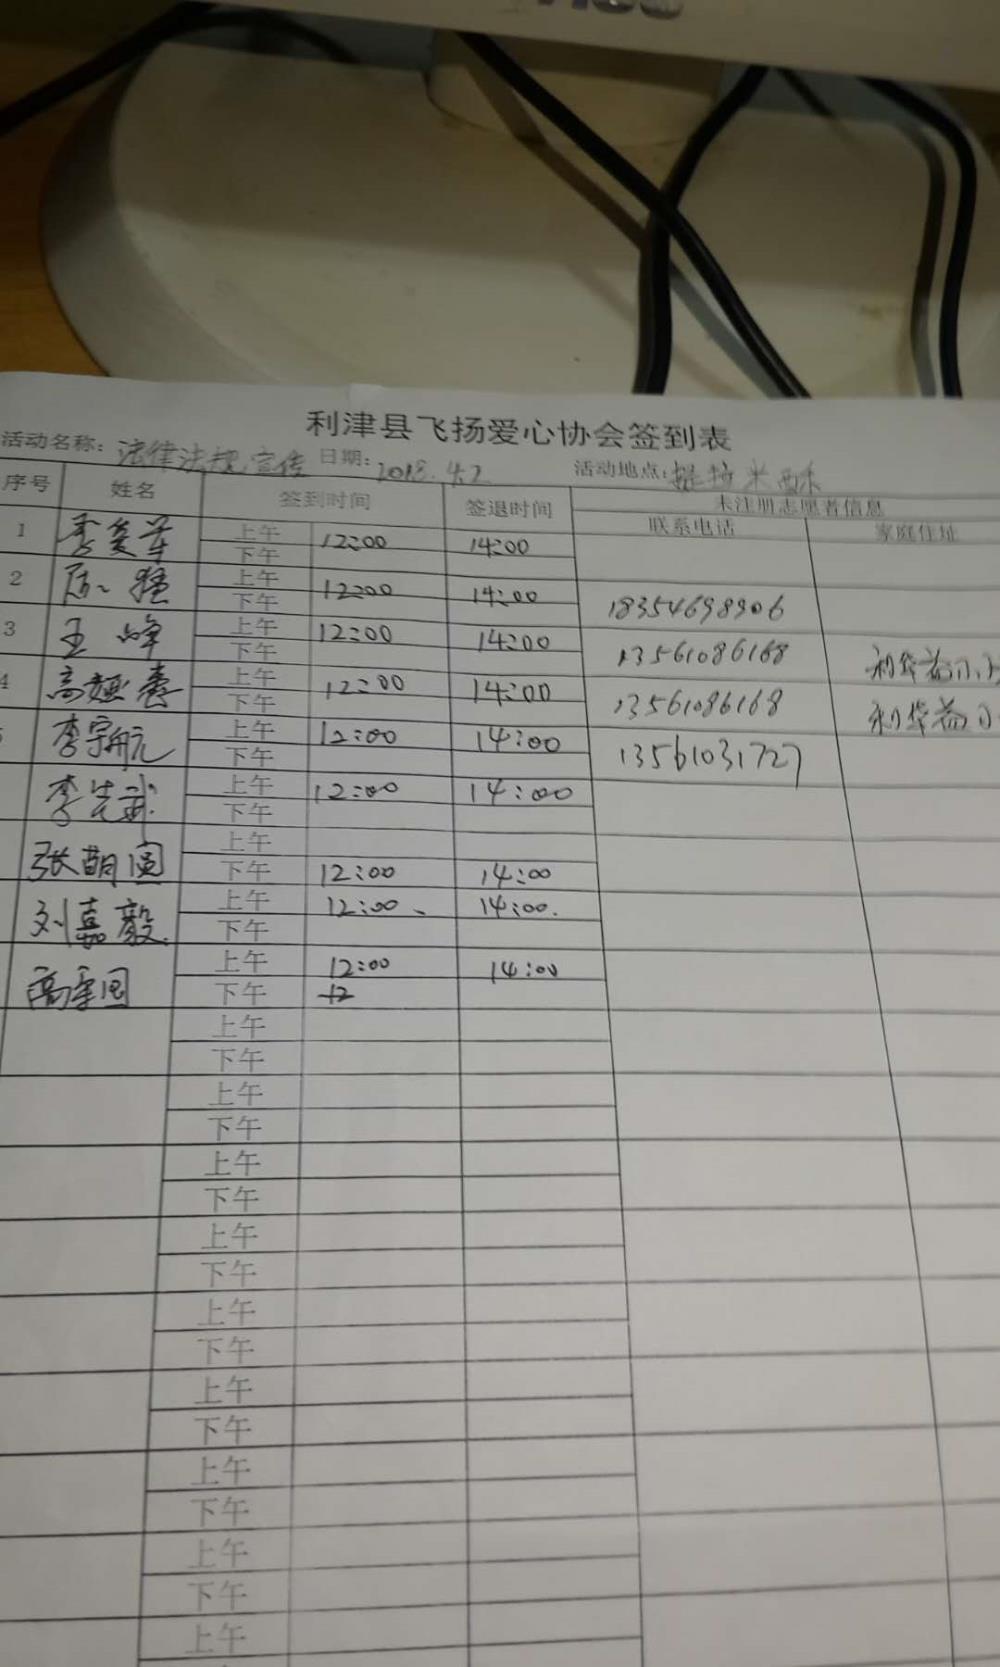 利津县飞扬爱心协会签到表
活动名称: 法律法规宣传 日期: 2018.4.2 活动地点: 提拉米酥
序号 姓名 签到时间 签退时间 未注册志愿者信息
联系电话 家庭住址
1 上午 12:00 14:00
下午
2 上午 12:00 14:00
下午 18354698906
3 王峰 上午 12:00 14:00
下午 13561086168 利华益小
4 上午 12:00 14:00
下午 13561086168 利华益小
李宇航 上午 12:00 14:00
下午 13561031727
李先武 上午 12:00 14:00
下午
张萌 上午
下午 12:00 14:00
刘嘉毅 上午 12:00 14:00
下午
高 上午 12:00 14:00
下午 12
上午
下午
上午
下午
上午
下午
上午
下午
上午
下午
上午
下午
上午
下午
上午
下午
上午